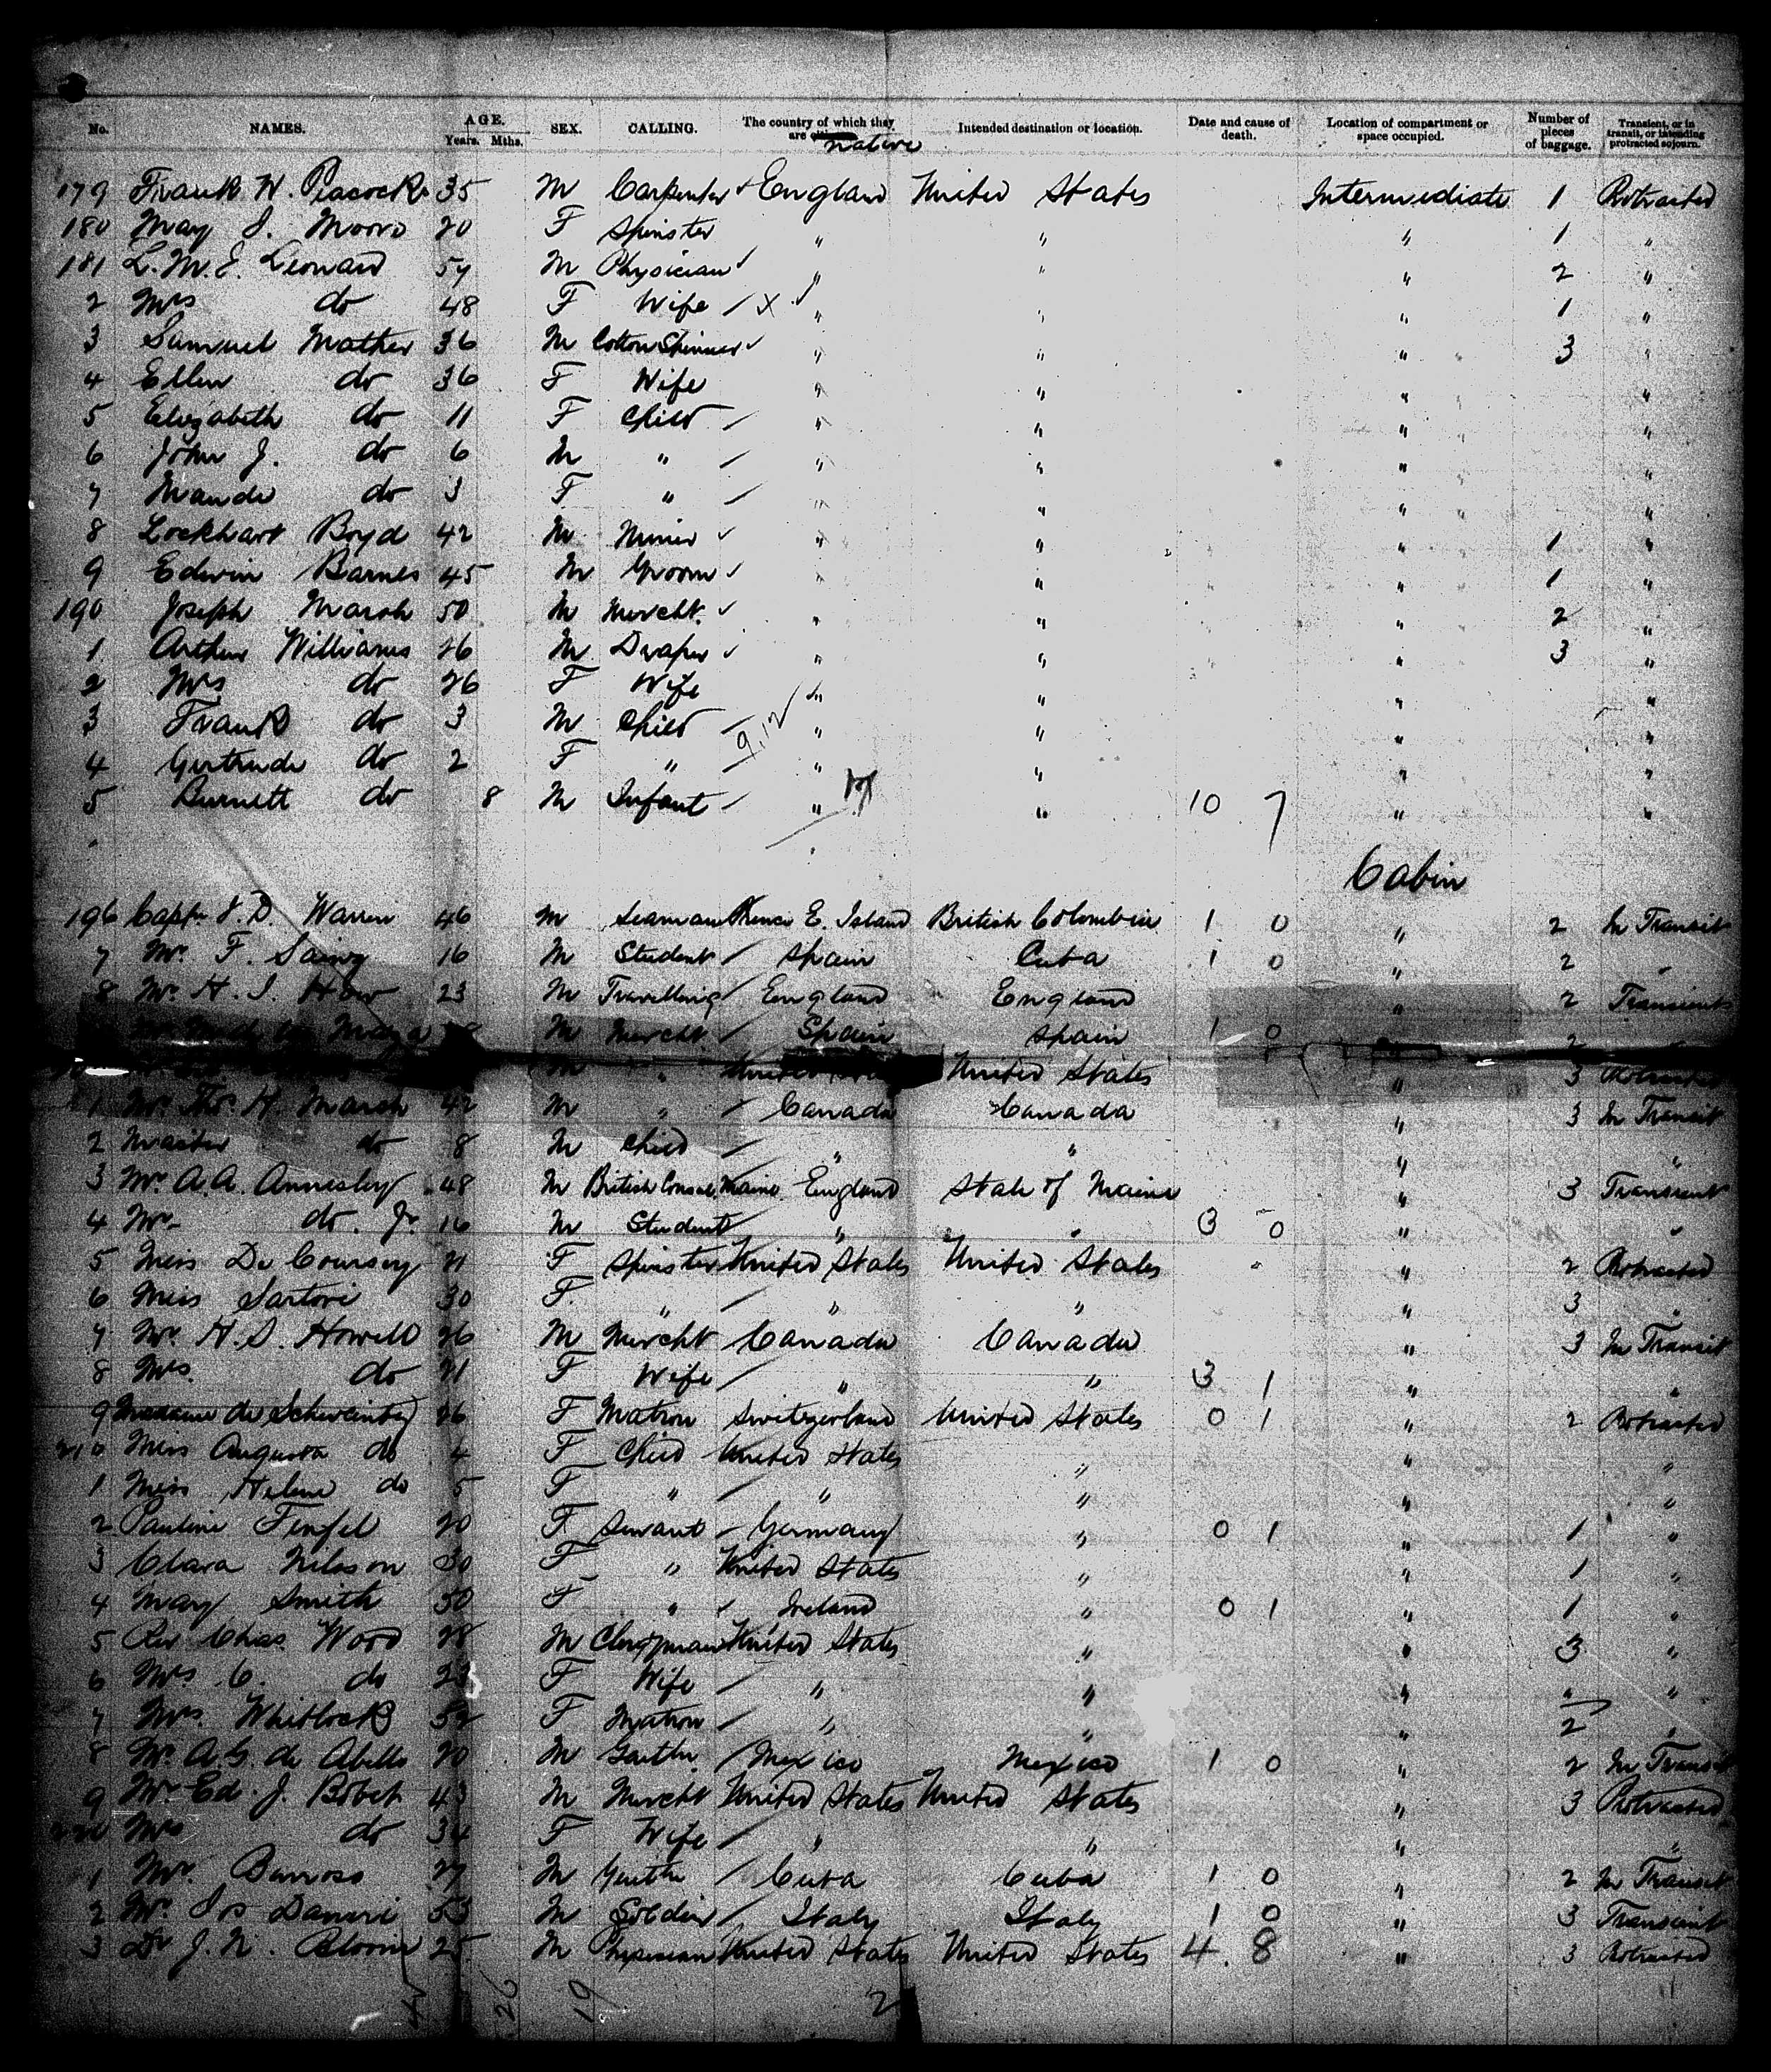 No. NAMES. AGE. Years. Mths. SEX. CALLING. The country of which they are native Intended destination or location. Date and cause of death. Location of compartment or space occupied. Number of pieces of baggage. Transient, or in transit, or intending protracted sojourn.
179 Frank W. Peacock 35 M Carpenter England United States Intermediate 1 Protracted
180 May J. Moore 20 F Spinster " " " 1 "
181 L. M. E. Leonard 54 M Physician " " " 2 "
2 Mrs do 48 F Wife X " " " 1 "
3 Samuel Mather 36 M Cotton Spinner " " " 3 "
4 Ellen do 36 F Wife " " " "
5 Elizabeth do 11 F Child " " " "
6 John J. do 6 M " " " " "
7 Maude do 3 F " " " " "
8 Lockhart Boyd 42 M Miner " " " 1 "
9 Edwin Barnes 45 M Groom " " " 1 "
190 Joseph Marsh 50 M Mercht. " " " 2 "
1 Arthur Williams 26 M Draper " " " 3 "
2 Mrs do 26 F Wife " " " "
3 Frank do 3 M Child " " " "
4 Gertrude do 2 F " " " " "
5 Burnett do 8 M Infant " " 10 7 " "
Cabin
196 Capt. J. D. Warren 46 M Seaman Prince E. Island British Colombia 1 0 " 2 In Transit
7 Mr. F. 16 M Student Spain Cuba 1 0 " 2 "
8 Mr. H. I. How 23 M Travelling England England " 2 Transient
M Mercht. Spain Spain 1 0 2
M " United States United States " 3 Protracted
1 Mr. Thos. H. Marsh 42 M " Canada Canada " 3 In Transit
2 Master do 8 M Child " " " "
3 Mr. A. A. Annesley 48 M British Consul Maine England State of Maine " 3 Transient
4 Mr. do. Jr. 16 M Student " " 3 0 " "
5 Miss De Coursey 21 F Spinster United States United States " 2 Protracted
6 Miss Sartori 30 F. " " " " 3 "
7 Mr. H. S. Howell 26 M Mercht Canada Canada " 3 In Transit
8 Mrs. do 21 F Wife " " 3 1 " "
9 Madame de Schweinitz 26 F Matron Switzerland United States 0 1 " 2 Protracted
210 Miss Augusta do 4 F Child United States " " "
1 Miss Helene do 5 F " " " " "
2 Pauline 20 F. Servant Germany " 0 1 " 1 "
3 Clara Nilsson 30 F " United States " " 1 "
4 Mary Smith 50 F " Ireland " 0 1 " 1 "
5 Rev Chas. Wood 28 M Clergyman United States " " 3 "
6 Mrs. C. do 23 F Wife " " " " "
7 Mrs. Whitlock 52 F Matron " " " 2 "
8 Mr. A. G. de Abello 20 M Gentln. Mexico Mexico 1 0 " 2 In Transit
9 Mr. Ed. J. Bobet 43 M Mercht United States United States " 3 Protracted
220 Mrs do 34 F Wife " " " "
1 Mr. Barroso 27 M Gentln Cuba Cuba 1 0 " 2 In Transit
2 Mr. Jos 53 M Soldier Italy Italy 1 0 " 3 Transient
3 Dr J. N. Bloom 25 M Physician United States United States 4 8 " 3 Protracted
26 19 2